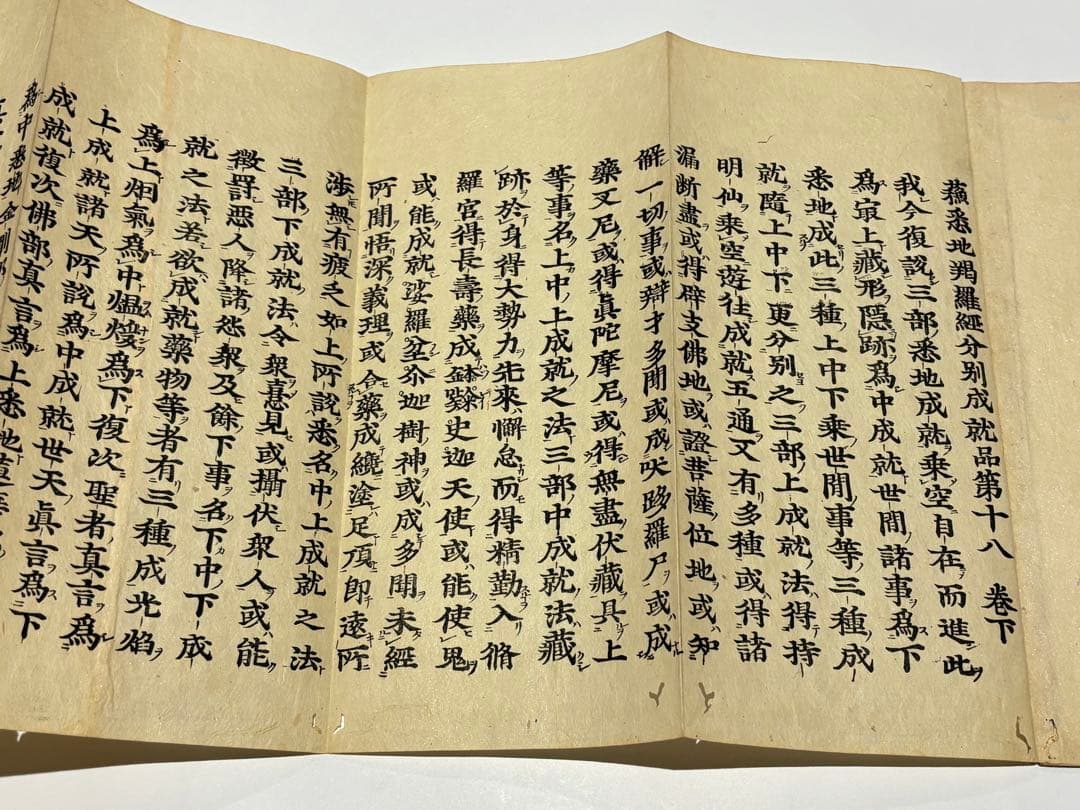 蘓悉地羯羅經分別成就品第十八 卷下
我今復說三部悉地成就乘空自在而進此
爲冣上藏形隱跡爲中成就世間諸事爲下
悉地成此三種上中下乘世間事等三種成
就隨上中下更分別之三部上成就法得持
明仙乘空遊往成就五通又有多種或得諸
漏断盡或得辟支佛地或證菩薩位地或知
解一切事或辯才多聞或成吠跢羅尸或成
藥叉尼或得眞陀摩尼或得無盡伏藏具上
等事名上中上成就之法三部中成就法藏
跡於身得大勢力先來懈怠而得精勤入脩
羅宮得長壽藥成鉢史迦天使或能使鬼
或能成就娑羅坌尒迦樹神或成多聞未經
所聞悟深義理或令藥成纔塗足頂即遠所
涉無有疲乏如上所說悉名中上成就之法
三部下成就法令衆憙見或攝伏衆人或能
徴罸惡人降諸怨衆及餘下事名下中下成
就之法若欲成就藥物等者有三種成光焰
爲上烟氣爲中熅煖爲下復次聖者真言爲
上成就諸天所說爲中成就世天眞言爲下
成就復次佛部真言爲上悉地
爲中悉地金剛